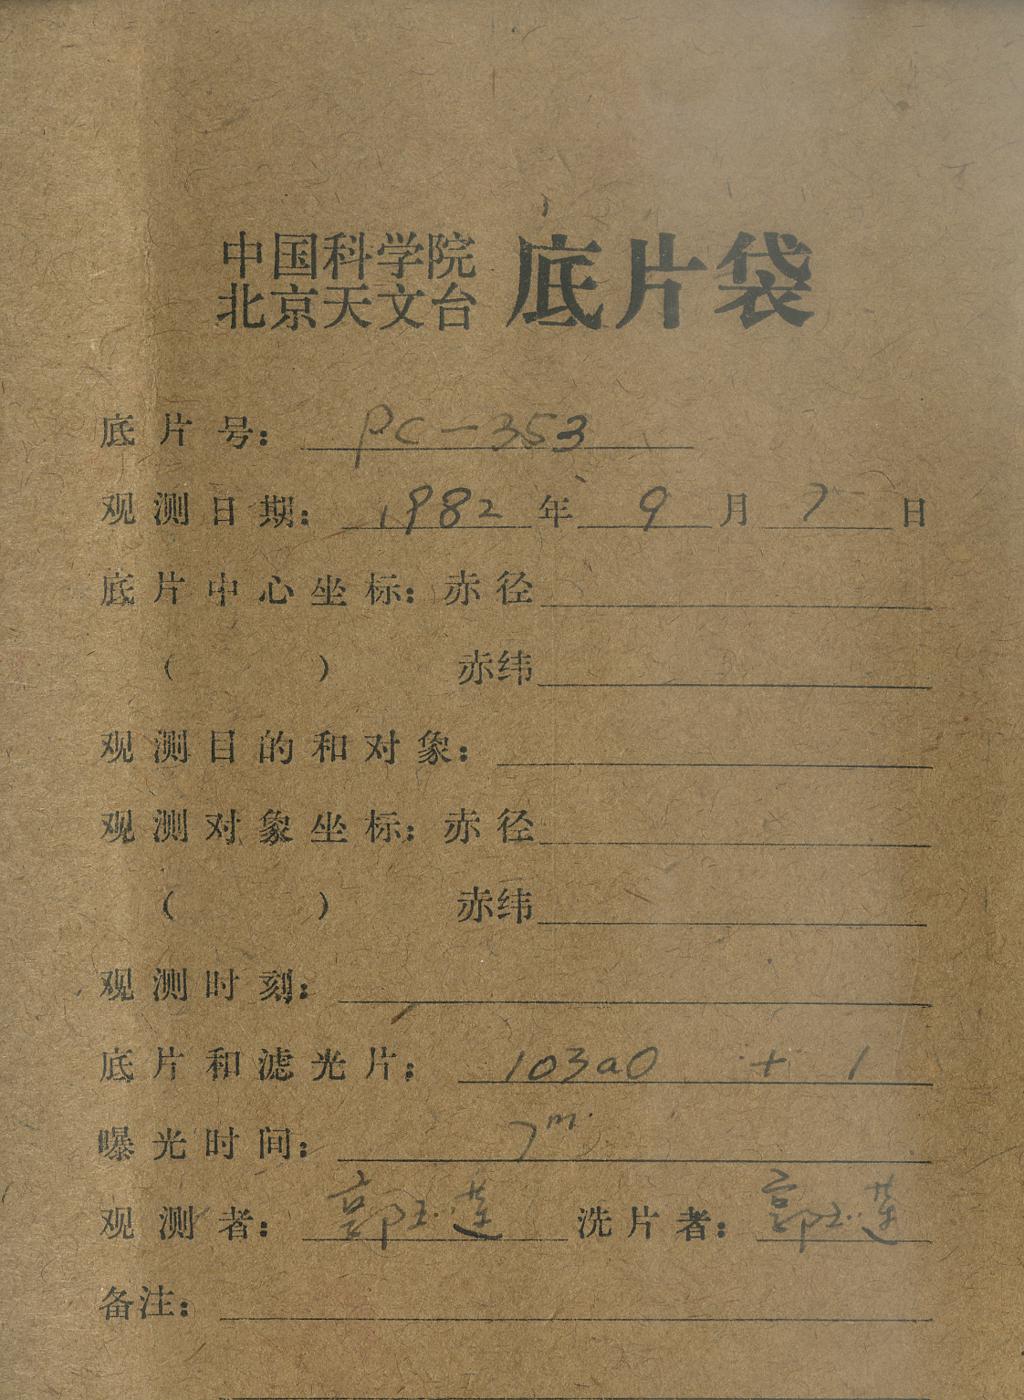 中国科学院
北京天文台 底片袋
底片号: PC-353
观测日期: 1982年 9月 7日
底片中心坐标: 赤径
( ) 赤纬
观测目的和对象:
观测对象坐标: 赤径
( ) 赤纬
观测时刻:
底片和滤光片: 103aO + 1
曝光时间: 7m
观测者: 郭玉莲 洗片者: 郭玉莲
备注: